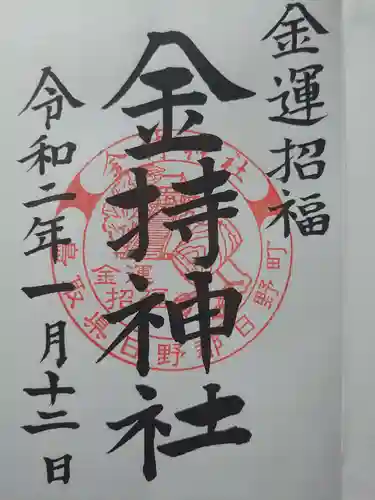 金運招福
金持神社
令和二年一月十二日
金持神社
金運
招福
鳥取県日野郡日野町